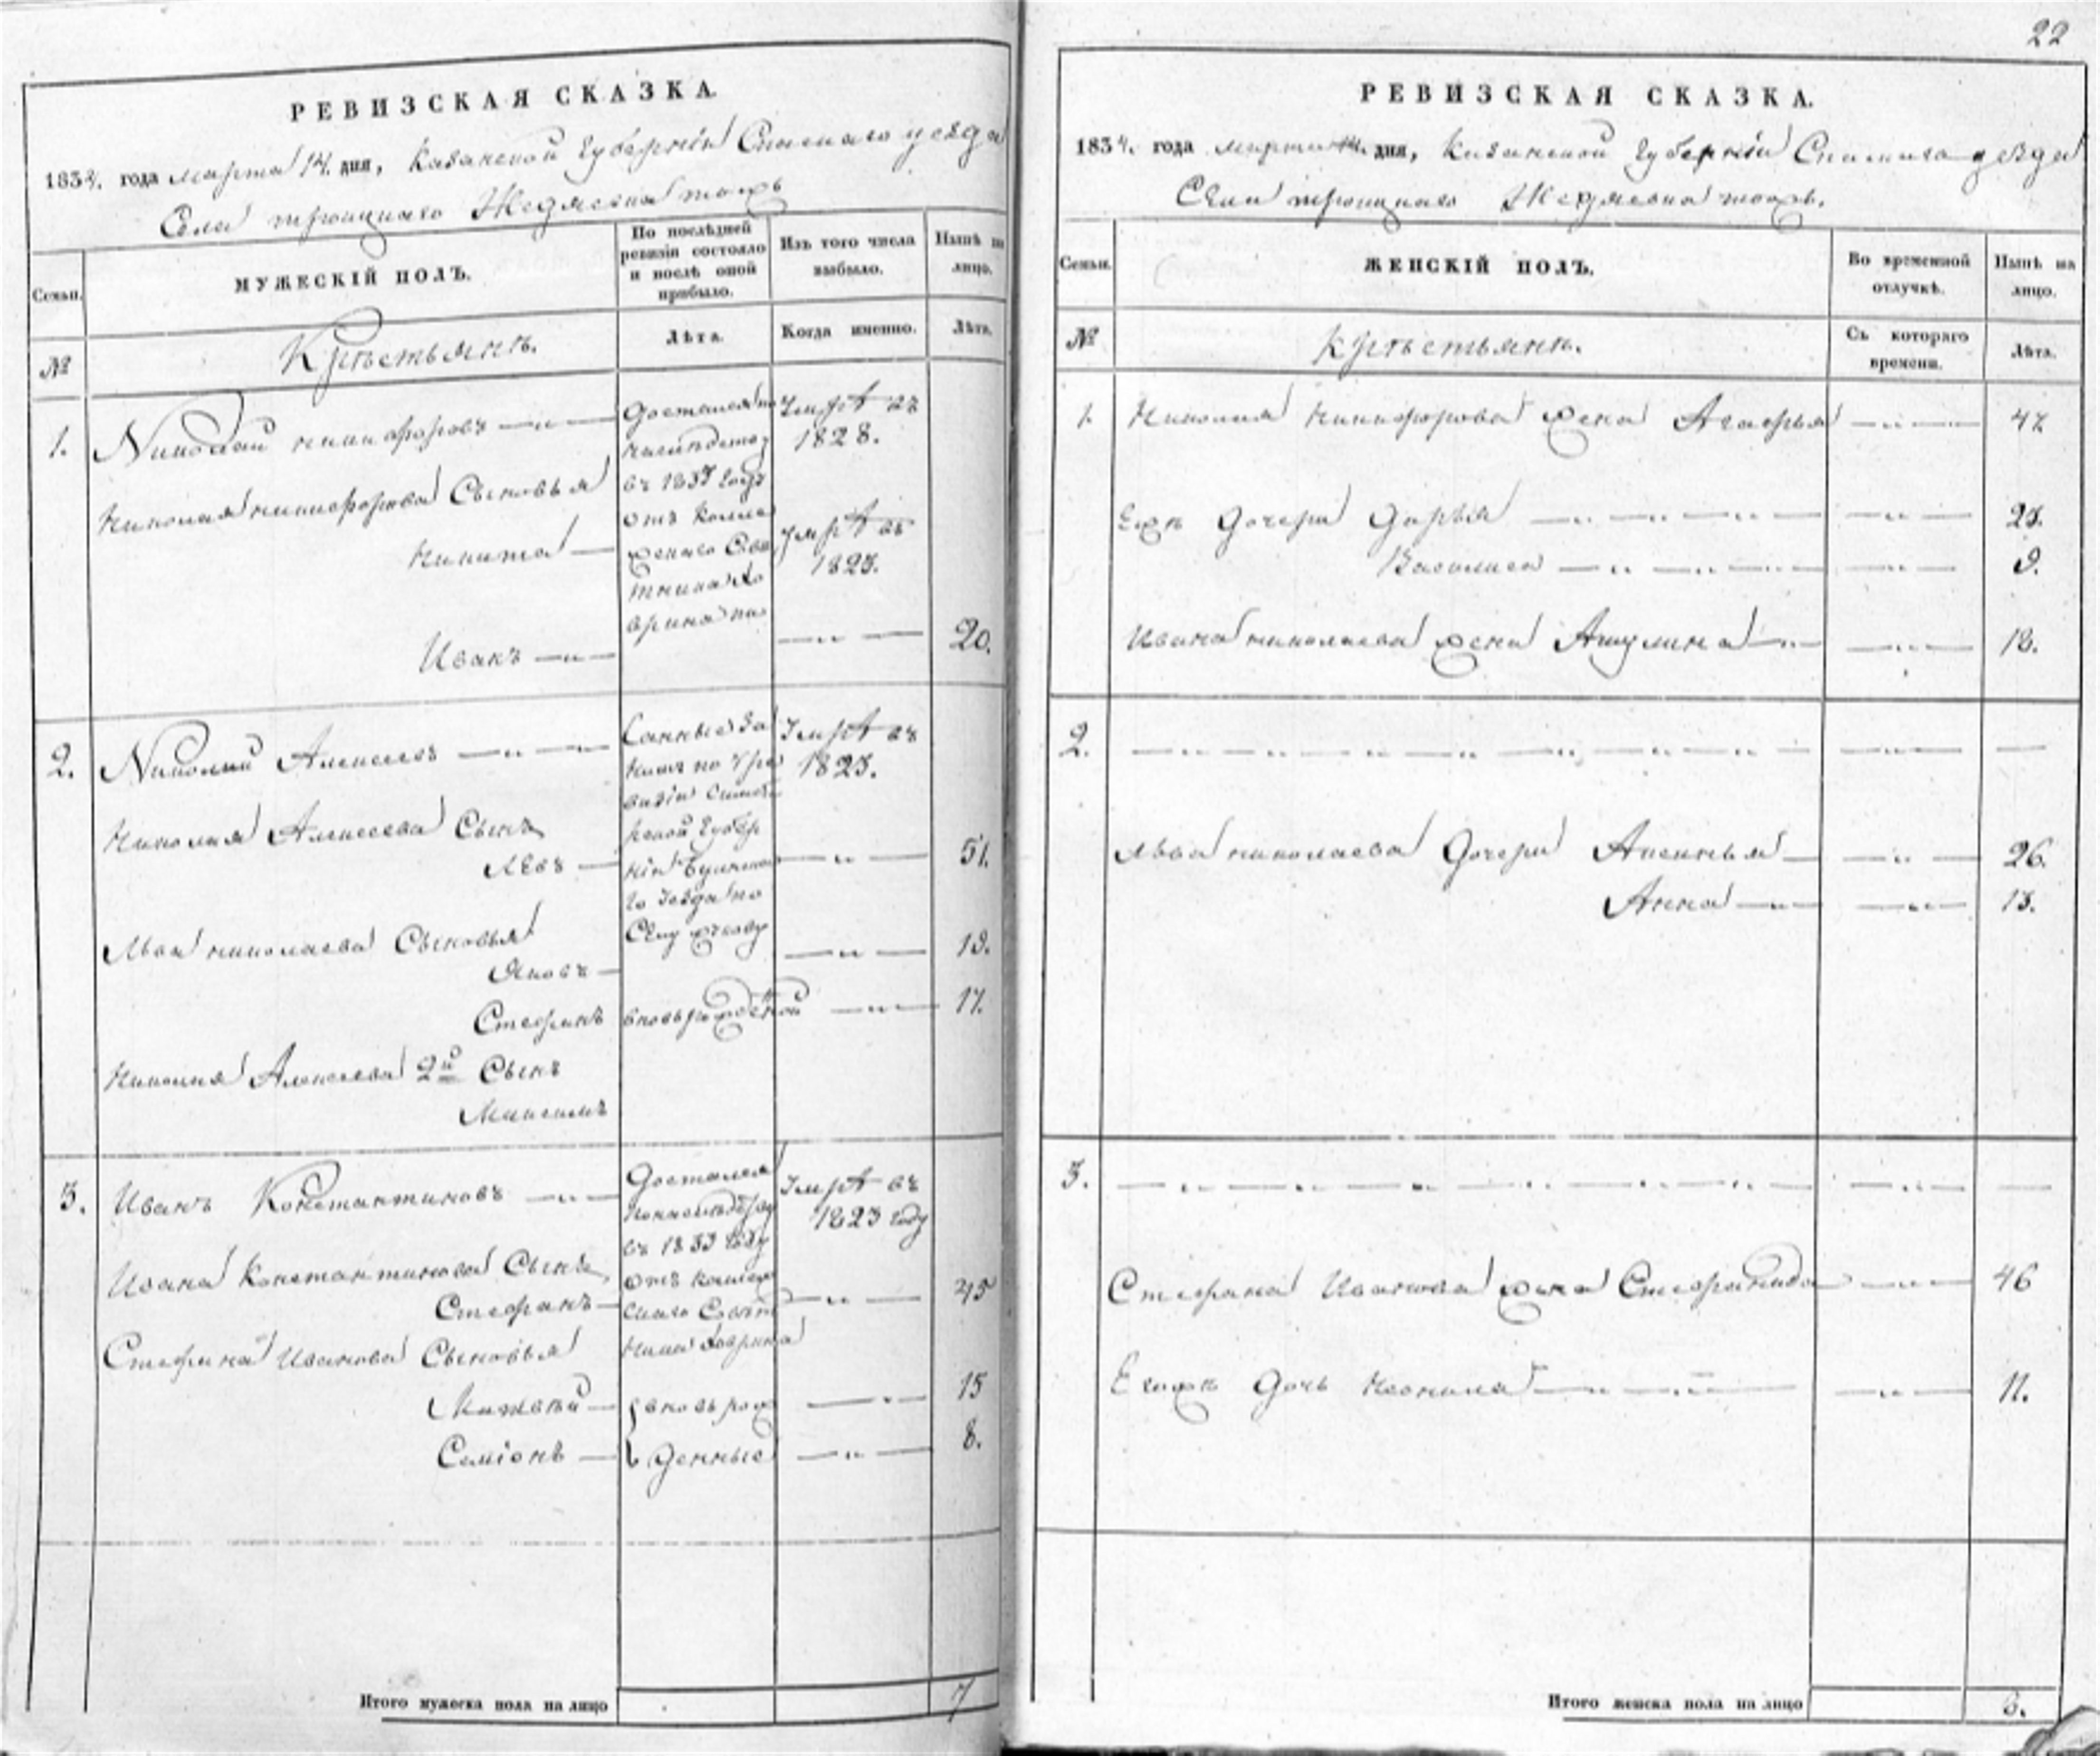 РЕВИЗСКАЯ СКАЗКА.
1834. года марта 14. дня, Казанской Губернiи Спаскаго уезда
Села троицкаго Жедяевка тожъ
Семьи.
МУЖЕСКІЙ ПОЛЪ.
По послѣдней ревизіи состояло и послѣ оной прибыло.
Изъ того числа выбыло.
Нынѣ на лицо.
№
Крѣстьянѣ.
Лѣта.
Когда именно.
Лѣта.
1.
Николай никифоровъ
Достался по
Умрѣ въ
1828.
Николая никифорова Сыновья
Никита
отъ Колле
жскаго Сове
тника
Умрѣ въ
1825.
Иванъ
20.
2.
Николай Алексеевъ
Умрѣ въ
1825.
Николая Алексеева Сынъ
Левъ
51.
Льва николаева Сыновья
Яковъ
19.
Стефанъ
вновьрожденной
17.
Николая Алексеева 2й Сынъ
Максимъ
3.
Иванъ Константиновъ
Достался
Умрѣ въ
1823 году
Ивана Константинова Сынъ
Стефанъ
45
Стефана Иванова Сыновья
Матвѣй
вновь рож
15
Семіонъ
денные
8.
Итого мужеска пола на лицо
7
22
РЕВИЗСКАЯ СКАЗКА.
1834. года марта 14. дня, Казанской Губернiи Спаскаго уезда
Села троицкаго Жедяевка тожъ.
Семьи.
ЖЕНСКІЙ ПОЛЪ.
Во временной отлучкѣ.
Нынѣ на лицо.
№
Крѣстьянѣ.
Съ котораго времени.
Лѣта.
1.
Николая Никифорова жена Агафья
47
Ехъ дочери Дарья
25.
Василиса
9.
Ивана николаева жена Акулина
18.
2.
Льва николаева Дочери Аксинья
26.
Анна
13.
3.
Стефана Иванова жена Стефанида
46
Егожъ Дочь Неонила
11.
Итого женска пола на лицо
8.